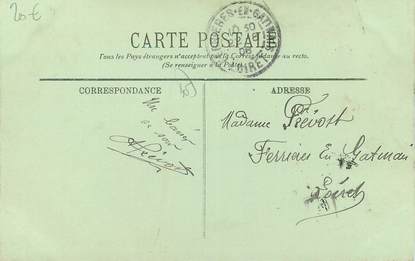 20€
CARTE POSTALE
Tous les Pays étrangers n'acceptent pas la Correspondance au recto.
(Se renseigner à la Poste)
CORRESPONDANCE
ADRESSE
Un baiser
ce soir
Prévost
Madame Prévost
Ferrières En Gatinais
Loiret